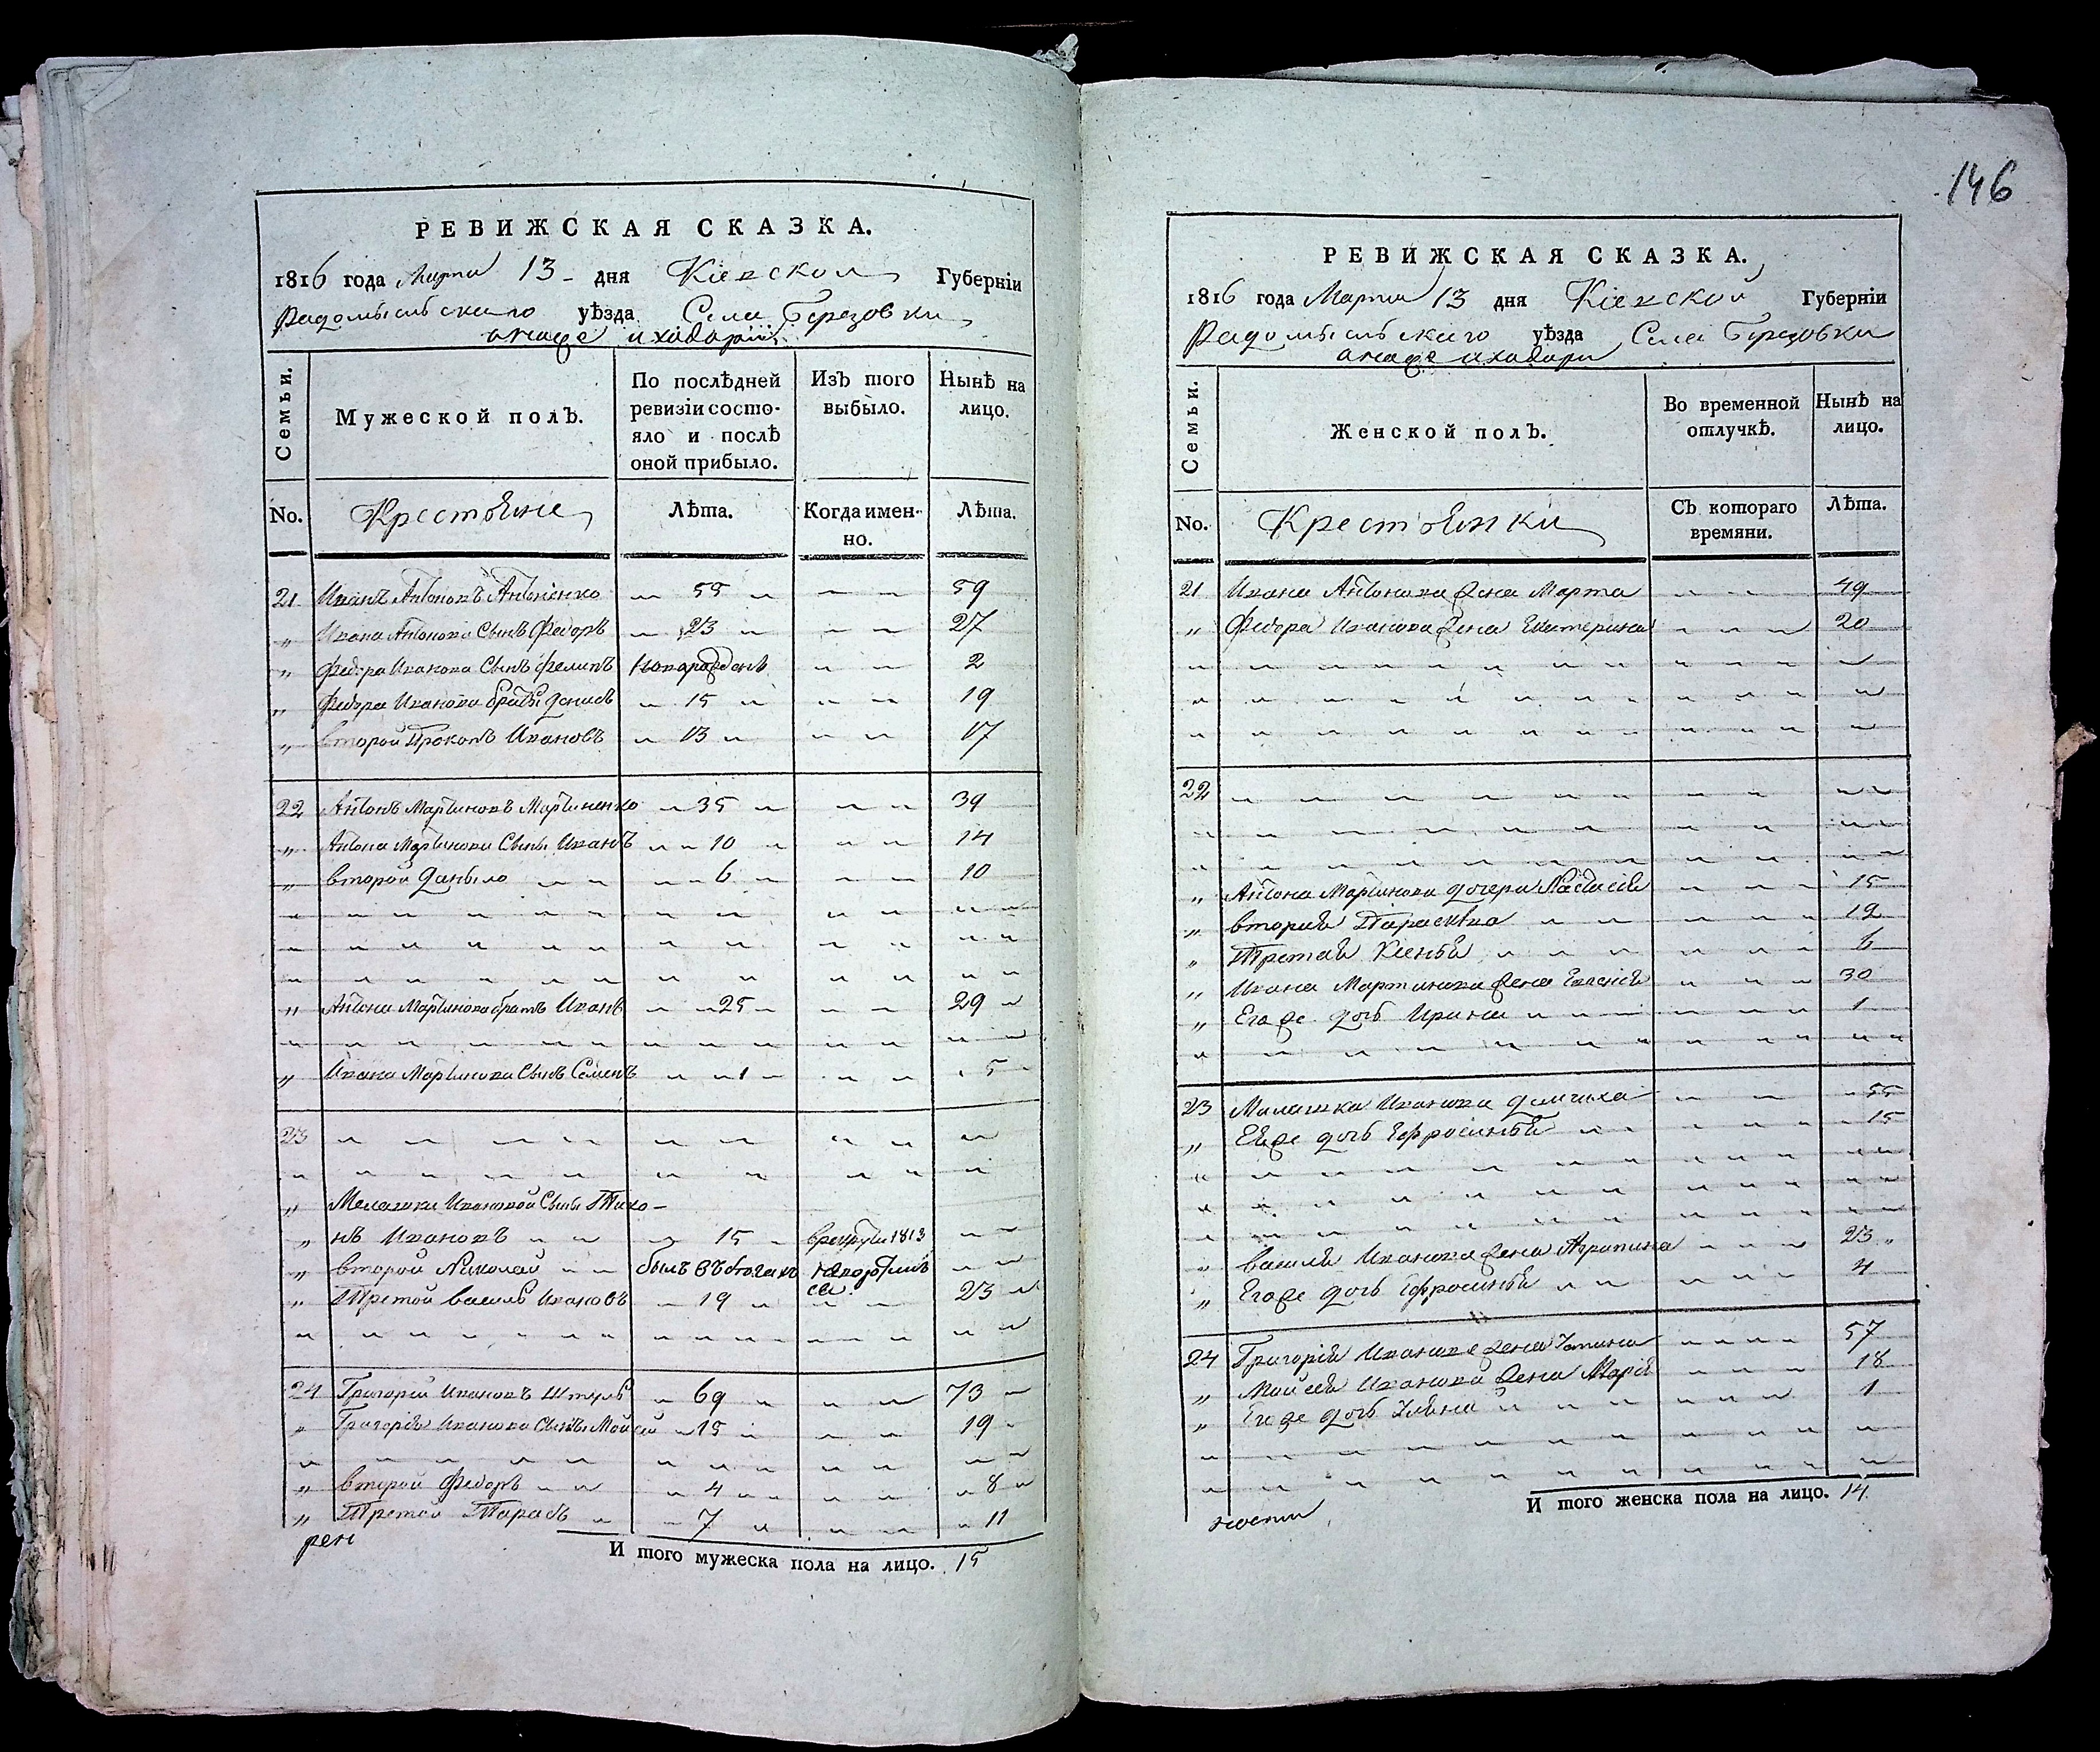 РЕВИЖСКАЯ СКАЗКА.
1816 года Марта 13 дня Кіевской Губерніи
Радомысльскаго уѣзда Села Березовки
Семьи.
Мужеской полъ.
По послѣдней ревизіи состояло и послѣ оной прибыло.
Изъ того выбыло.
Нынѣ на лицо.
No.
Крестьяне
Лѣта.
Когда именно.
Лѣта.
21 Иванъ Антоновъ Антоненко 55 59
„ Ивана Антонова Сынъ Федоръ 23 27
„ Федора Иванова Сынъ Филипъ новорожденъ 2
„ Федора Иванова братья Денисъ 15 19
„ второй Прокопъ Ивановъ 13 17
22 Антонъ Мартиновъ Мартиненко 35 39
„ Антона Мартинова Сынъ Иванъ 10 14
„ второй Даныло 6 10
„ Антона Мартинова братъ Иванъ 25 29
„ Ивана Мартинова Сынъ Семенъ 1 5
23
„ Мелашки Ивановой Сыны Тихо-
„ нъ Ивановъ 15 в рекруты 1813
„ второй Николай былъ въ бегахъ
„ Третой василь Ивановъ 19 23
24 Григорій Ивановъ 69 73
„ Григорія Иванова Сыны Мойсей 15 19
„ второй Федоръ 4 8
„ Третой Тарасъ 7 11
И того мужеска пола на лицо. 15
146
РЕВИЖСКАЯ СКАЗКА.
1816 года Марта 13 дня Кіевской Губерніи
Радомысльскаго уѣзда Села Березовки
Семьи.
Женской полъ.
Во временной отлучкѣ.
Нынѣ на лицо.
No.
Крестьянки
Съ котораго времяни.
Лѣта.
21 Ивана Антонова жена Марта 49
„ Федора Иванова жена Екатерина 20
22
„ Антона Мартинова дочери Настасія 15
„ вторая Параска 12
„ Третая Ксенья 6
„ Ивана Мартинова жена 30
„ Его же дочь Ирина 1
23 Малашка Иванова 55
„ Ея же дочь Ефросинья 15
„ василя Иванова жена Агрипина 23
„ Его же дочь Ефросинья 4
24 Григорія Иванова жена 57
„ Мойсея Иванова жена Марія 18
„ Его же дочь 1
И того женска пола на лицо. 14